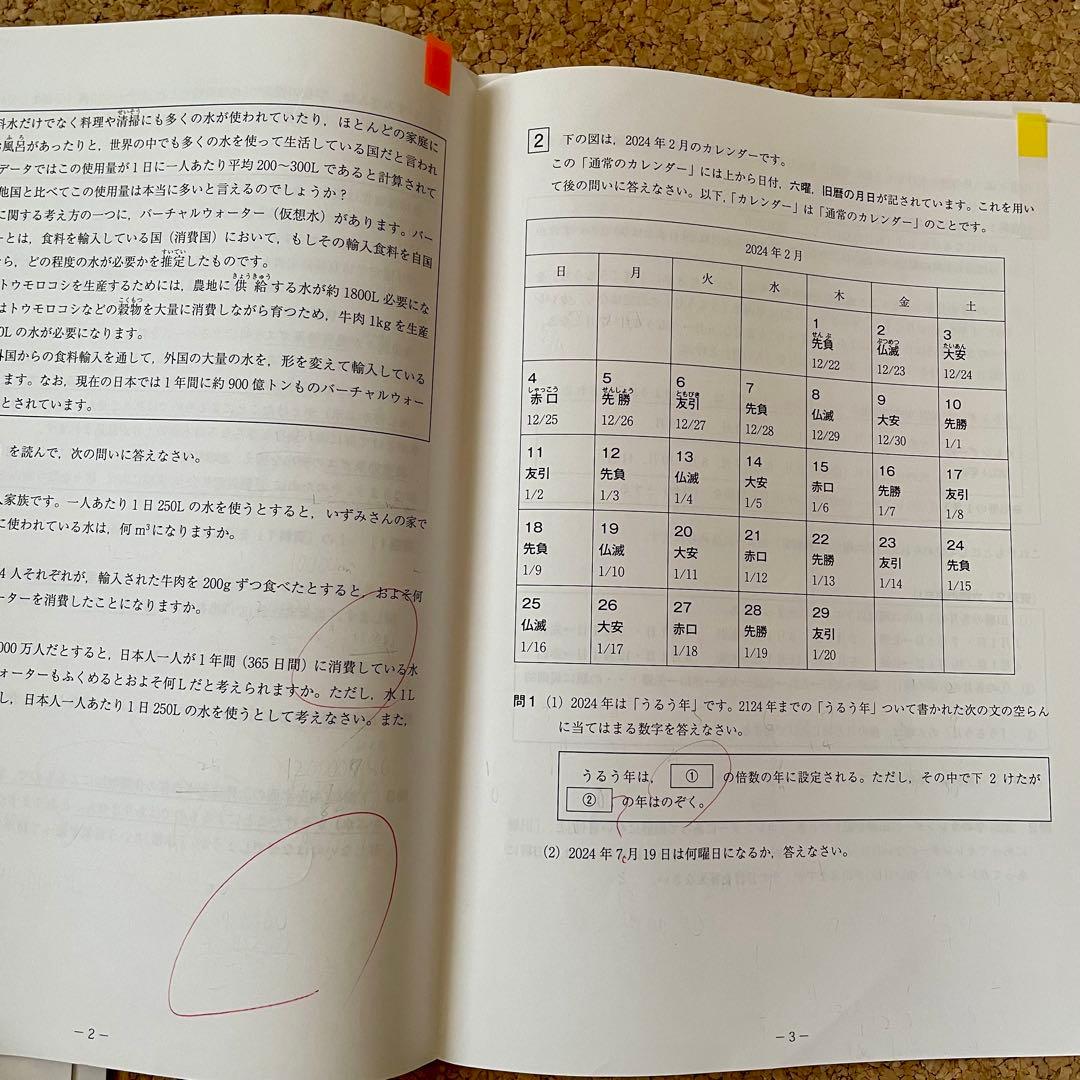 料水だけでなく料理や清掃にも多くの水が使われていたり，ほとんどの家庭に
お風呂があったりと，世界の中でも多くの水を使って生活している国だと言われ
データではこの使用量が1日に一人あたり平均200～300Lであると計算されて
他国と比べてこの使用量は本当に多いと言えるのでしょうか？
に関する考え方の一つに，バーチャルウォーター（仮想水）があります。バー
ーとは，食料を輸入している国（消費国）において，もしその輸入食料を自国
ら，どの程度の水が必要かを推定したものです。
トウモロコシを生産するためには，農地に供給する水が約1800L必要にな
はトウモロコシなどの穀物を大量に消費しながら育つため，牛肉1kgを生産
0Lの水が必要になります。
外国からの食料輸入を通して，外国の大量の水を，形を変えて輸入している
ます。なお，現在の日本では1年間に約900億トンものバーチャルウォー
とされています。
を読んで，次の問いに答えなさい。
人家族です。一人あたり1日250Lの水を使うとすると，いずみさんの家で
に使われている水は，何m³になりますか。
4人それぞれが，輸入された牛肉を200gずつ食べたとすると，およそ何
ーターを消費したことになりますか。
000万人だとすると，日本人一人が1年間（365日間）に消費している水
ウォーターもふくめるとおよそ何Lだと考えられますか。ただし，水1L
し，日本人一人あたり1日250Lの水を使うとして考えなさい。また，
－2－
2 下の図は，2024年2月のカレンダーです。
この「通常のカレンダー」には上から日付，六曜，旧暦の月日が記されています。これを用い
て後の問いに答えなさい。以下，「カレンダー」は「通常のカレンダー」のことです。
2024年2月
日 月 火 水 木 金 土
1 2 3
せんぶ ぶつめつ たいあん
先負 仏滅 大安
12/22 12/23 12/24
4 5 6 7 8 9 10
しゃっこう せんしょう ともびき
赤口 先勝 友引 先負 仏滅 大安 先勝
12/25 12/26 12/27 12/28 12/29 12/30 1/1
11 12 13 14 15 16 17
友引 先負 仏滅 大安 赤口 先勝 友引
1/2 1/3 1/4 1/5 1/6 1/7 1/8
18 19 20 21 22 23 24
先負 仏滅 大安 赤口 先勝 友引 先負
1/9 1/10 1/11 1/12 1/13 1/14 1/15
25 26 27 28 29
仏滅 大安 赤口 先勝 友引
1/16 1/17 1/18 1/19 1/20
問1 (1) 2024年は「うるう年」です。2124年までの「うるう年」ついて書かれた次の文の空らん
に当てはまる数字を答えなさい。
うるう年は，① の倍数の年に設定される。ただし，その中で下2けたが
② の年はのぞく。
(2) 2024年7月19日は何曜日になるか，答えなさい。
－3－